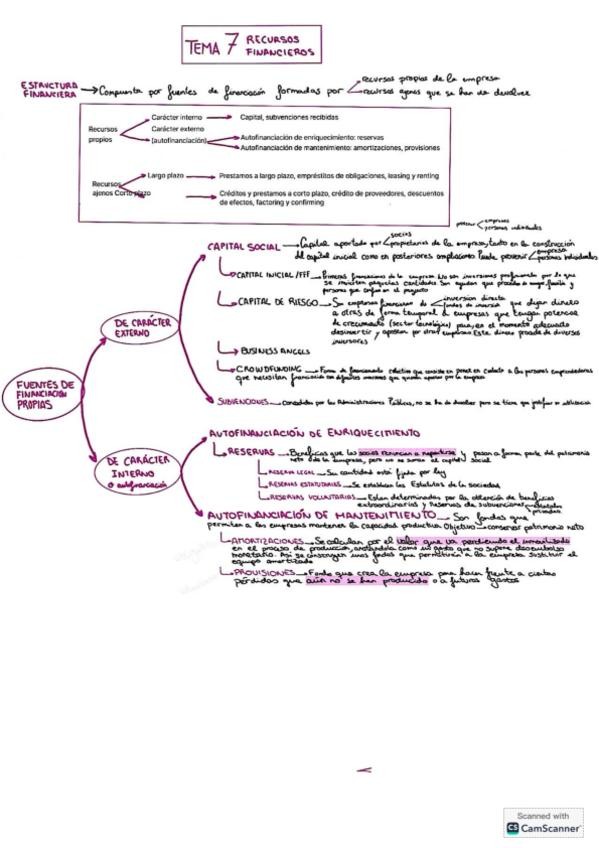 TEMA 7 RECURSOS
FINANCIEROS
ESTRUCTURA
FINANCIERA
Compuesta por fuentes de financiación formadas por
recursos propios de la empresa
recursos ajenos que se han de devolver
Recursos
propios
Carácter interno
Capital, subvenciones recibidas
Carácter externo
(autofinanciación)
Autofinanciación de enriquecimiento: reservas
Autofinanciación de mantenimiento: amortizaciones, provisiones
Recursos
ajenos
Largo plazo
Prestamos a largo plazo, empréstitos de obligaciones, leasing y renting
Corto plazo
Créditos y prestamos a corto plazo, crédito de proveedores, descuentos
de efectos, factoring y confirming
FUENTES DE
FINANCIACIÓN
PROPIAS
DE CARÁCTER
EXTERNO
CAPITAL SOCIAL
Capital aportado por
socios
propietarios
de la empresa, tanto en la construcción
del capital inicial como en posteriores ampliaciones Puede provenir
empresas
personas individuales
CAPITAL INICIAL/FFF
Primeras financiaciones de la empresa No son inversores profesionales por lo que
CAPITAL DE RIESGO
Son empresas financieras de
inversión directa
fondos de inversión
que dejan dinero
a otras de forma temporal a empresas que tengan potencial
de crecimiento (sector tecnológico) para, en el momento adecuado
desinvertir y apostar por otras empresas Este dinero procede de diversos
inversores
BUSINESS ANGELS
CROWDFUNDING
que necesitan financiación
SUBVENCIONES
Concedidas por las Administraciones Públicas, no se ha de devolver pero se tiene que justificar su utilización
DE CARÁCTER
INTERNO
o autofinanciación
AUTOFINANCIACIÓN DE ENRIQUECIMIENTO
RESERVAS
Beneficios que los socios renuncian a repartirse y pasan a formar parte del patrimonio
neto de la empresa, pero no se suman al capital social
RESERVA LEGAL
Su cantidad está fijada por ley
RESERVAS ESTATUTARIAS
Se establecen los Estatutos de la sociedad
RESERVAS VOLUNTARIAS
Están determinadas por la obtención de beneficios
extraordinarios y Reservas de subvenciones
estatales
privadas
AUTOFINANCIACIÓN DE MANTENIMIENTO
Son fondos que
permiten a las empresas mantener la capacidad productiva Objetivo
conservar patrimonio neto
AMORTIZACIONES
Se calculan por el valor que va perdiendo el inmovilizado
en el proceso de producción, anotándolo como un gasto que no supone desembolso
monetario. Así se construyen unos fondos que permitirán a la empresa sustituir el
equipo amortizado
PROVISIONES
Fondo que crea la empresa para hacer frente a ciertas
pérdidas que aún no se han producido o a futuros gastos
Scanned with
CS CamScanner